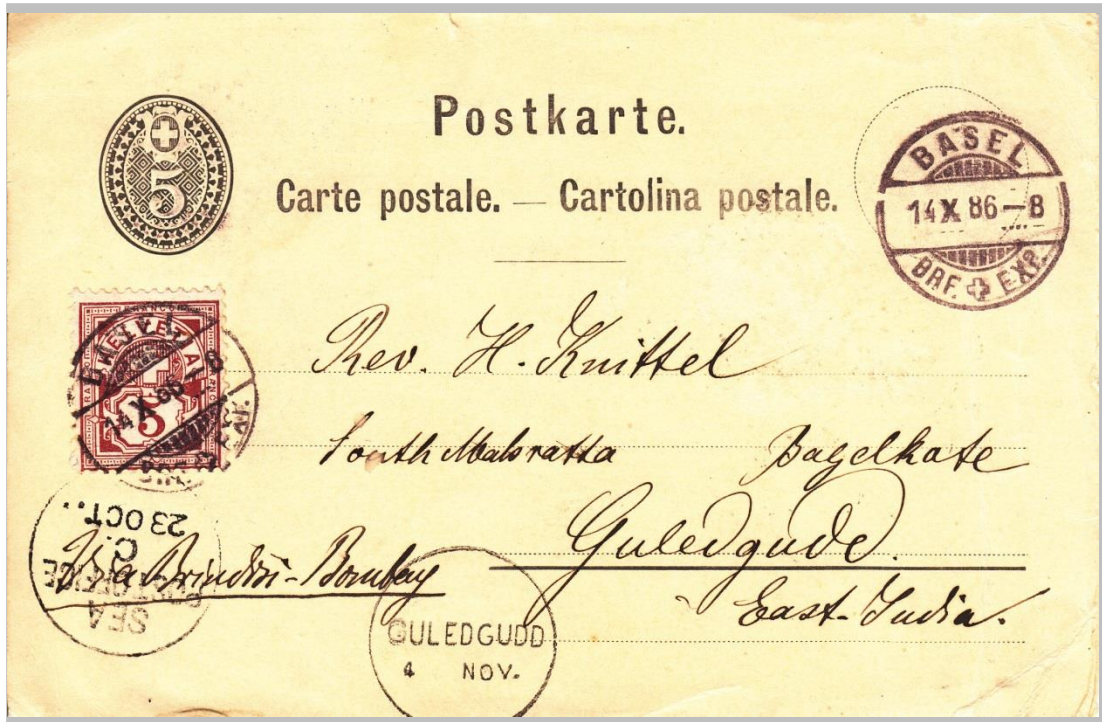 Postkarte.
Carte postale. — Cartolina postale.
5
BASEL
14 X 86 – 8
BRF. EXP.
HELVETIA
5
14 X 86 – 8
Rev. H. Knittel
South Mahratta Bagelkote
Guledgudd.
East-India.
Via Brindisi-Bombay
SEA
POST OFFICE
C.
23 OCT..
GULEDGUDD
4 NOV.